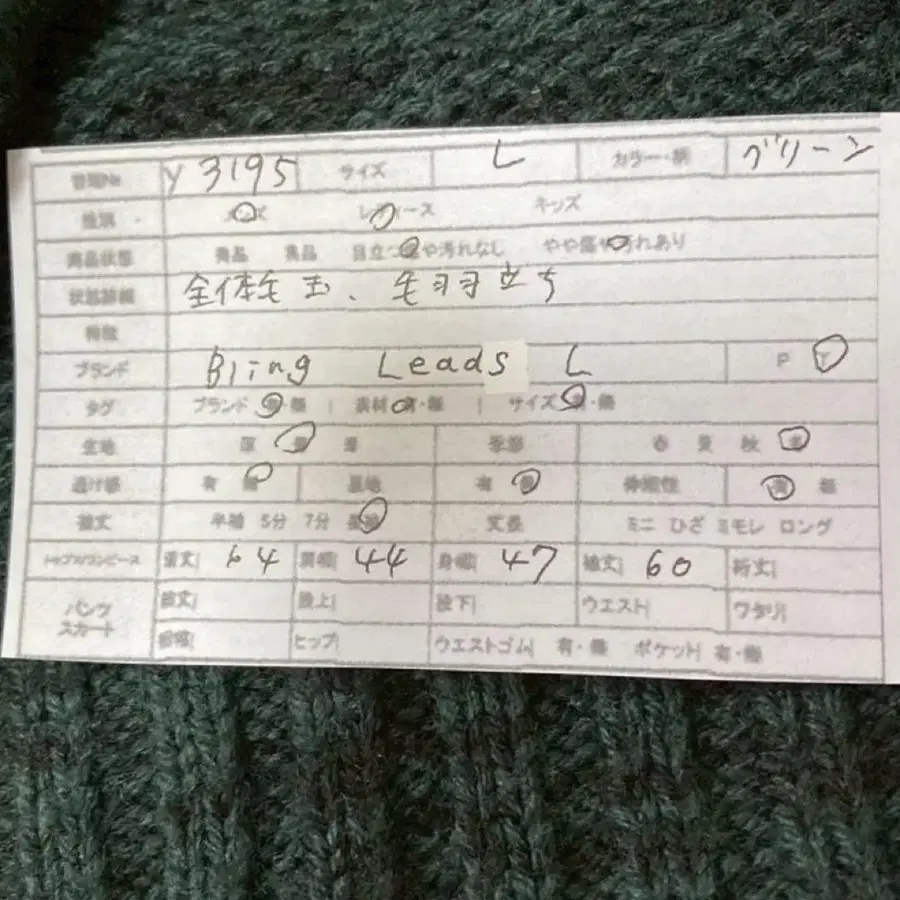 管理No Y3195 サイズ L カラー・柄 グリーン
種別 メンズ レディース キッズ
商品状態 美品 良品 目立つ傷や汚れなし やや傷や汚れあり
状態詳細 全体毛玉、毛羽立ち
特徴
ブランド Bling Leads L P Y
タグ ブランド 有・無 | 素材 有・無 | サイズ 有・無
生地 厚 普 薄 季節 春 夏 秋 冬
透け感 有 無 裏地 有 無 伸縮性 有 無
袖丈 半袖 5分 7分 長袖 丈長 ミニ ひざ ミモレ ロング
トップス/ワンピース 着丈| 64 肩幅| 44 身幅| 47 袖丈| 60 裄丈|
パンツ スカート 総丈| 股上| 股下| ウエスト| ワタリ|
裾幅| ヒップ| ウエストゴム| 有・無 ポケット| 有・無